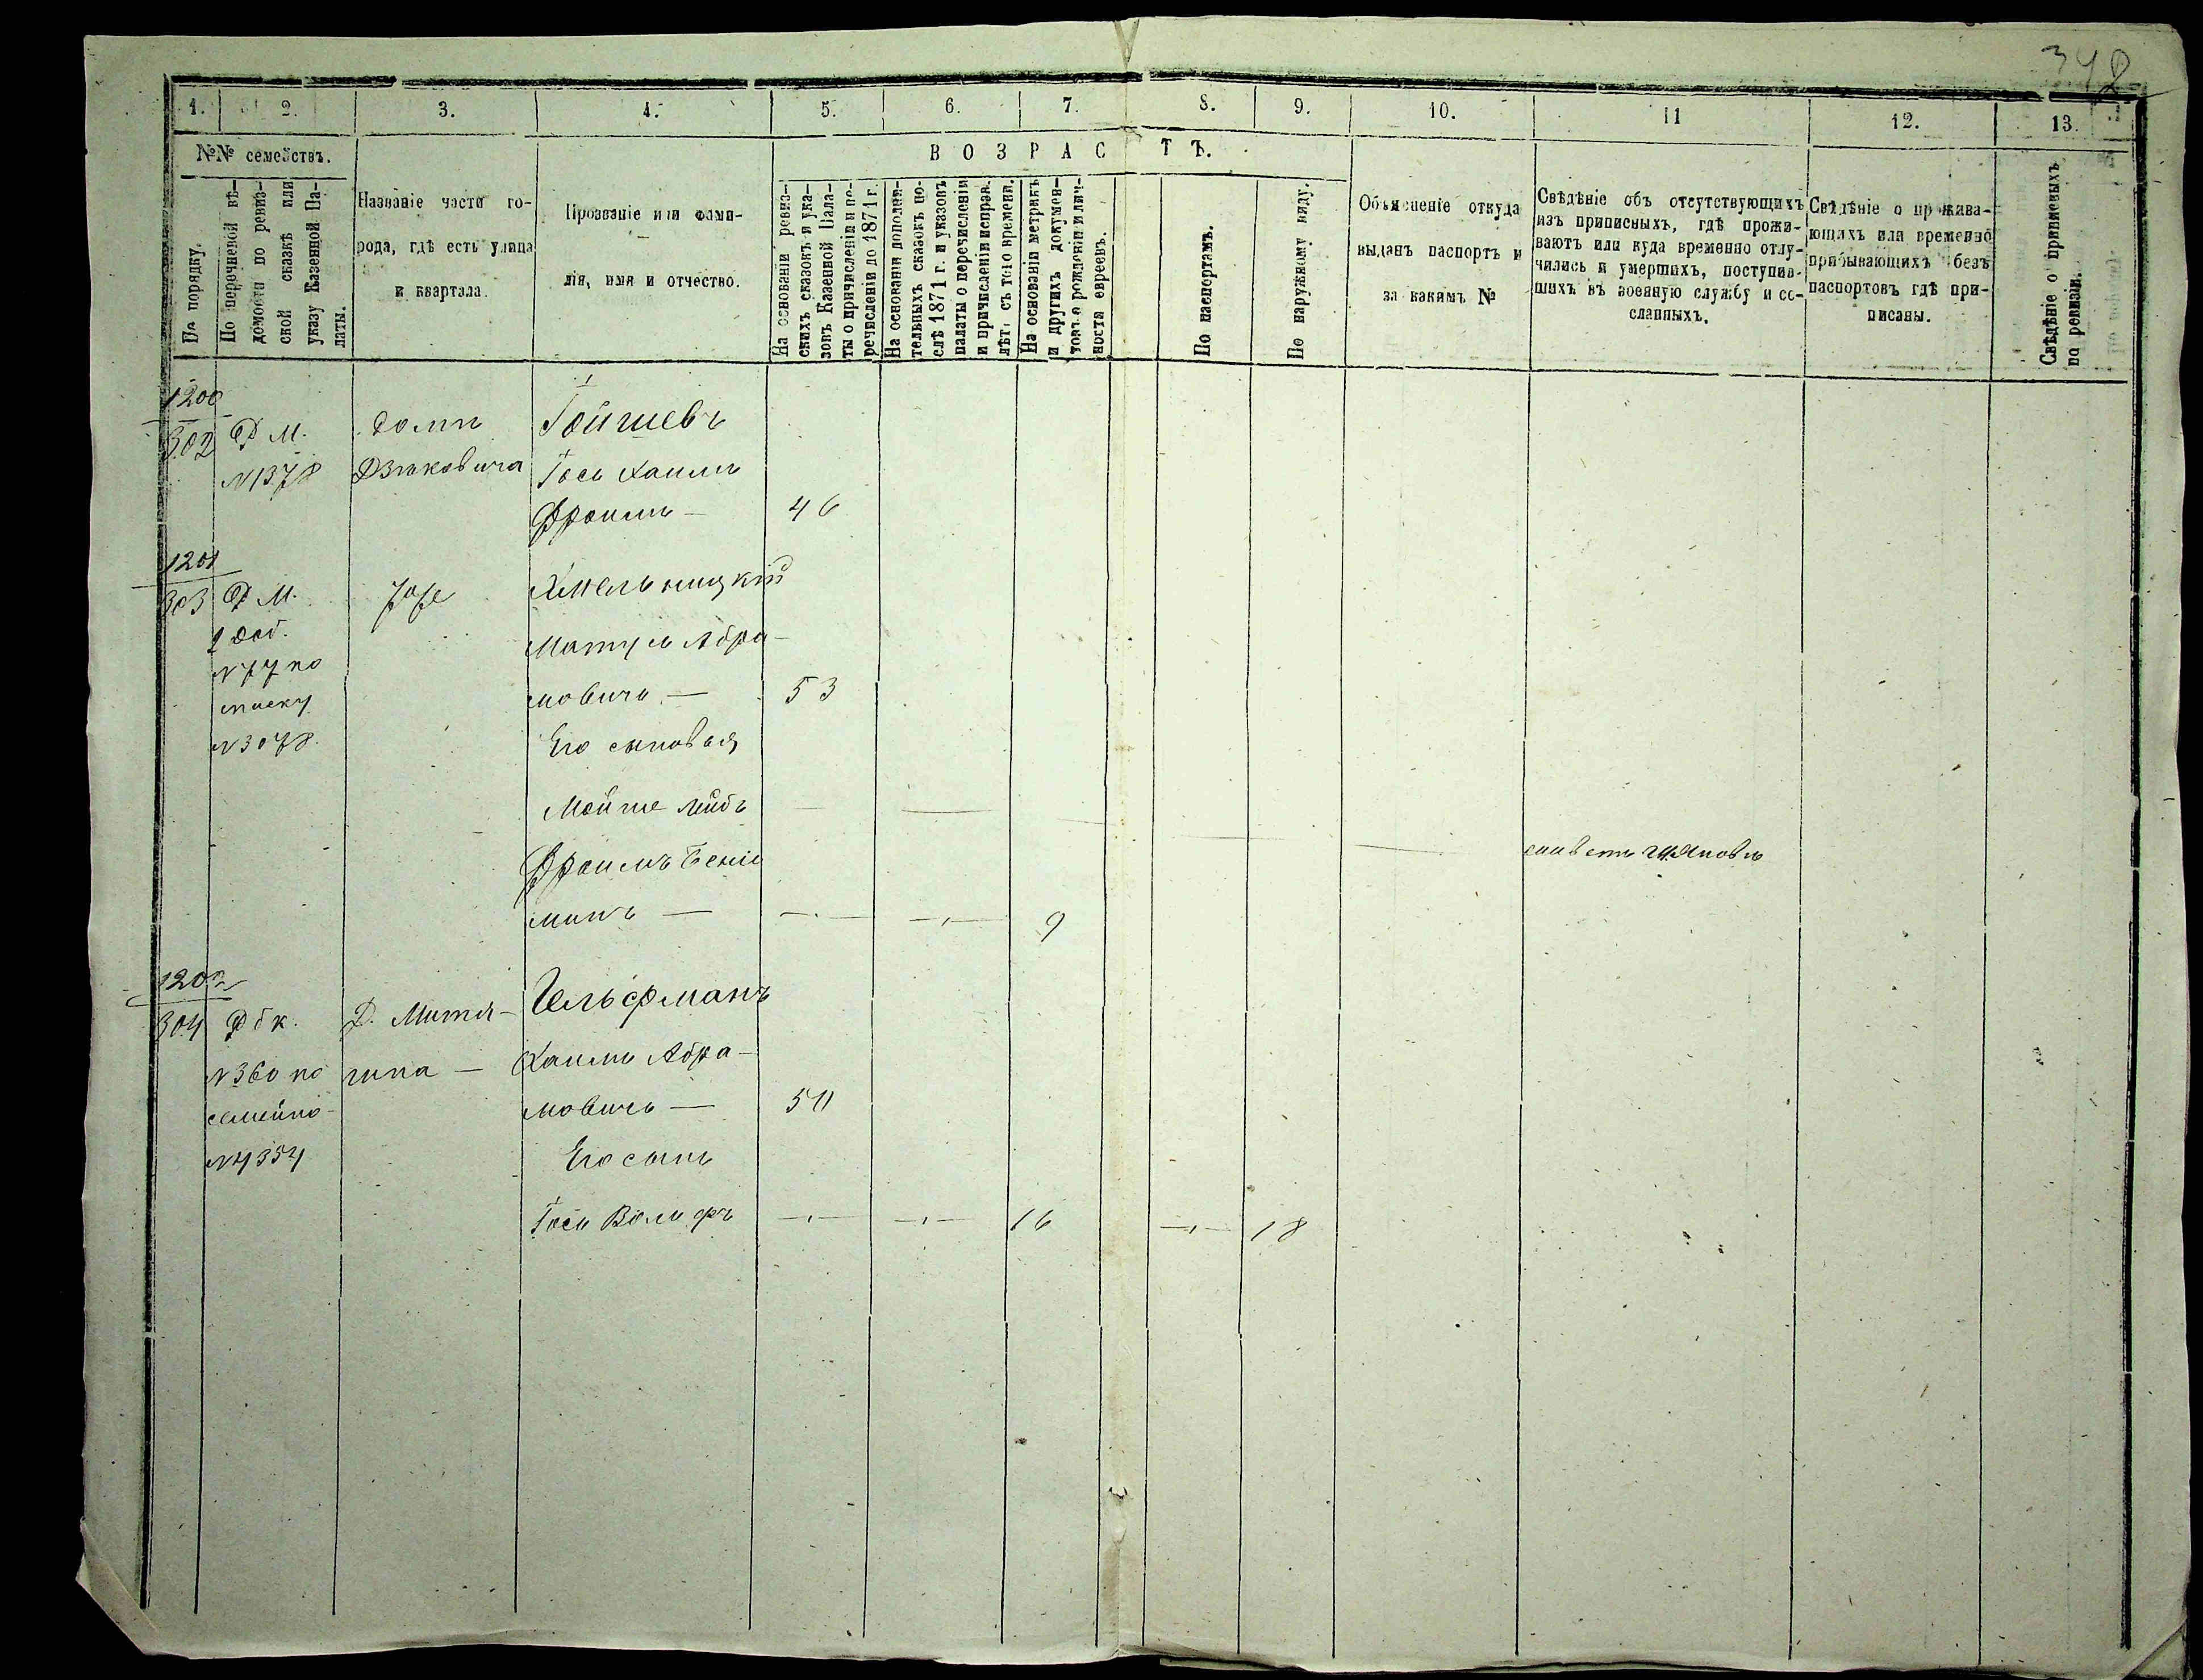 348
1. 2. 3. 4. 5. 6. 7. 8. 9. 10. 11 12. 13.
№№ семействъ.
По порядку.
По перечневой вѣ-
домости по ревиз-
ской сказкѣ или
указу Казенной Па-
латы.
Названіе части го-
рода, гдѣ есть улица
и квартала.
Прозваніе или фами-
лія, имя и отчество.
ВОЗРАСТЪ.
На основаніи ревиз-
скихъ сказокъ и ука-
зовъ Казенной Пала-
ты о причисленіи и пе-
речисленіи до 1871 г.
На основаніи дополни-
тельныхъ сказокъ по-
слѣ 1871 г. и указовъ
палаты о перечисленіи
и причисленіи исправ.
лѣтъ съ того времени.
На основаніи метрикъ
и другихъ докумен-
товъ о рожденіи и лич-
ности евреевъ.
По паспортамъ.
По наружному виду.
Объясненіе откуда
выданъ паспортъ и
за какимъ №
Свѣдѣніе объ отсутствующихъ
изъ приписныхъ, гдѣ прожи-
ваютъ или куда временно отлу-
чились и умершихъ, поступив-
шихъ въ военную службу и со-
сланныхъ.
Свѣдѣніе о прожива-
ющихъ или временно
прибывающихъ безъ
паспортовъ гдѣ при-
писаны.
Свѣдѣніе о приписныхъ
по ревизіи.
1200
302 Ф М. домъ Гойшевъ
№ 1378 Іось Хаимъ
Фроимъ — 46
1201
303 Ф М. Хмельницкій
2 доб. Мотель Абра-
№ 77 по
мовичъ — 53
списку
№ 3078. Его сыновья
Мойше Лейбъ
Фроимъ Бенія
минъ — 9
1202
304 Ф б к. Д. Мити- Гельфманъ
№ 360 по Хаимъ Абра-
семейно- мовичъ — 50
№ 4354 Его сынъ
Іось Вольфъ 16 18